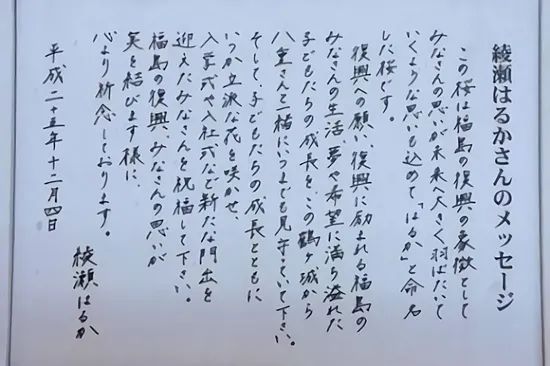 綾瀬はるかさんのメッセージ
この桜は福島の復興の象徴として
みなさんの思いが未来へ大きく羽ばたいて
いくような思いも込めて「はるか」と命名
した桜です。
復興への願い、復興に励まれる福島の
みなさんの生活、夢や希望に満ち溢れた
子どもたちの成長を、この鶴ヶ城から
八重さんと一緒にいつまでも見守っていて下さい。
そして、子どもたちの成長とともに
いつか立派な花を咲かせ、
入学式や入社式など新たな門出を
迎えたみなさんを祝福して下さい。
福島の復興、みなさんの思いが
実を結びます様に、
心より祈念しております。
平成二十五年十二月四日
綾瀬はるか